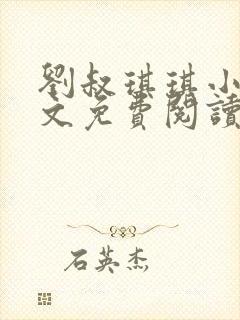 劉叔琪琪小
文免費閱讀
石英杰